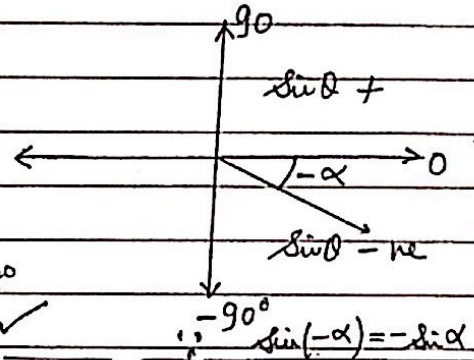 90
sinθ +
0
-α
sinθ -ve
-90°
∵ sin(-α) = -sinα